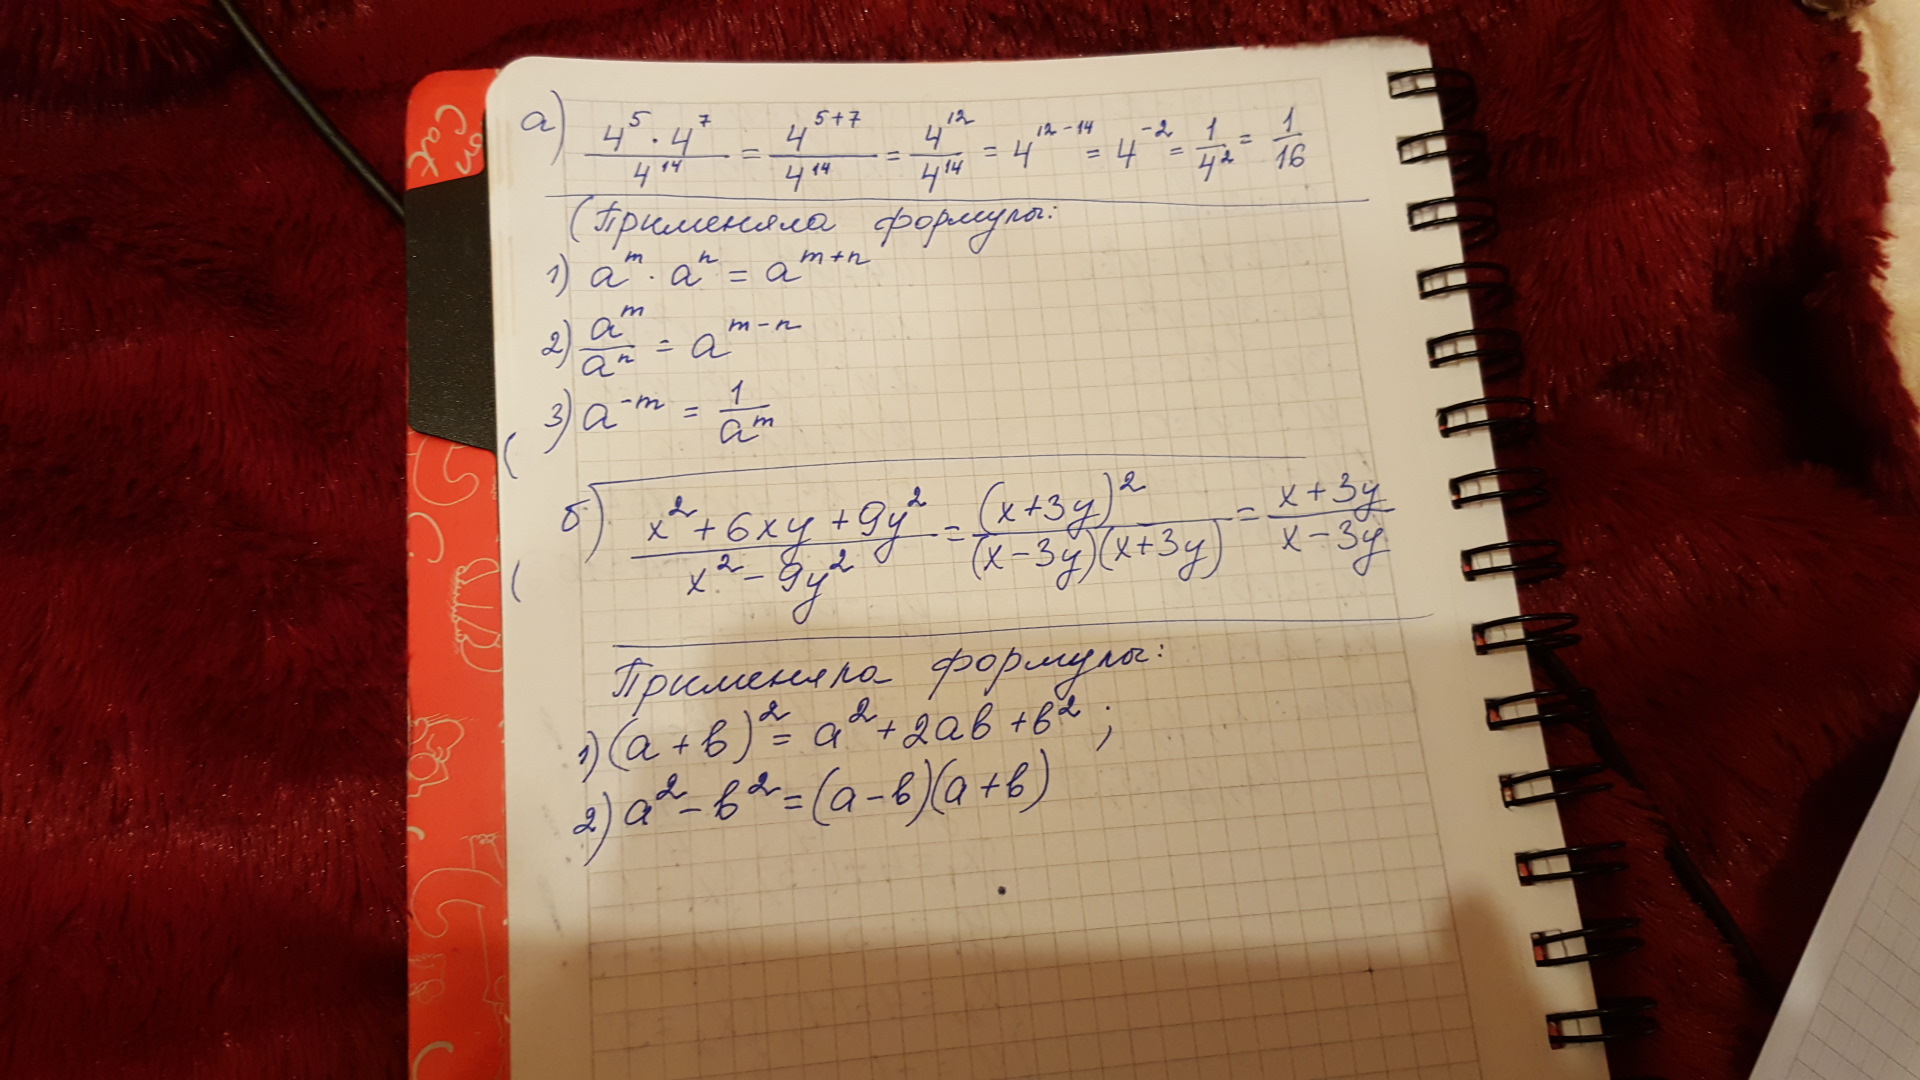 Cat on
а) 4^5 · 4^7 / 4^14 = 4^(5+7) / 4^14 = 4^12 / 4^14 = 4^(12-14) = 4^(-2) = 1 / 4^2 = 1 / 16
(Применяла формулы:
1) a^m · a^n = a^(m+n)
2) a^m / a^n = a^(m-n)
3) a^(-m) = 1 / a^m
б) (x^2 + 6xy + 9y^2) / (x^2 - 9y^2) = (x+3y)^2 / (x-3y)(x+3y) = (x+3y) / (x-3y)
Применяла формулы:
1) (a+b)^2 = a^2 + 2ab + b^2 ;
2) a^2 - b^2 = (a-b)(a+b)